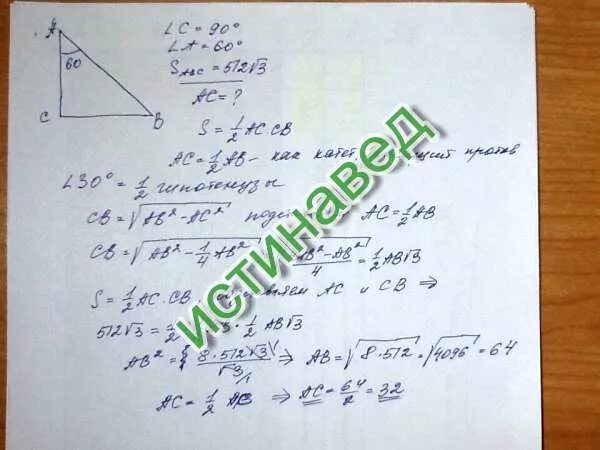 A
60
C
B
∠C = 90°
∠A = 60°
S ABC = 512√3
AC = ?
S = 1/2 AC·CB
AC = 1/2 AB – как катет, против
∠30° = 1/2 гипотенузы
CB = √(AB² - AC²) AC = 1/2 AB
CB = √(AB² - 1/4 AB²) AB² - AB² / 4 = 1/2 AB√3
S = 1/2 AC·CB AC и CB ⇒
512√3 = · 1/2 AB√3
AB² = 8·512√3 / √3 ⇒ AB = √(8·512) = √4096 = 64
AC = 1/2 AB ⇒ AC = 64/2 = 32
истинавед